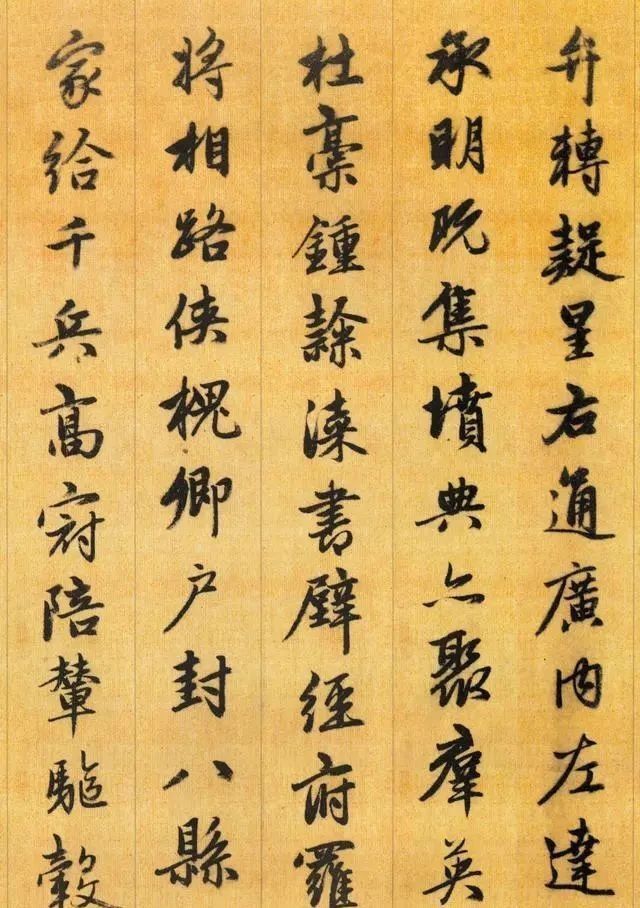 弁轉疑星右通廣内左達
承明既集墳典亦聚羣英
杜稾鍾隸漆書壁經府羅
將相路俠槐卿户封八縣
家給千兵高冠陪輦驅轂